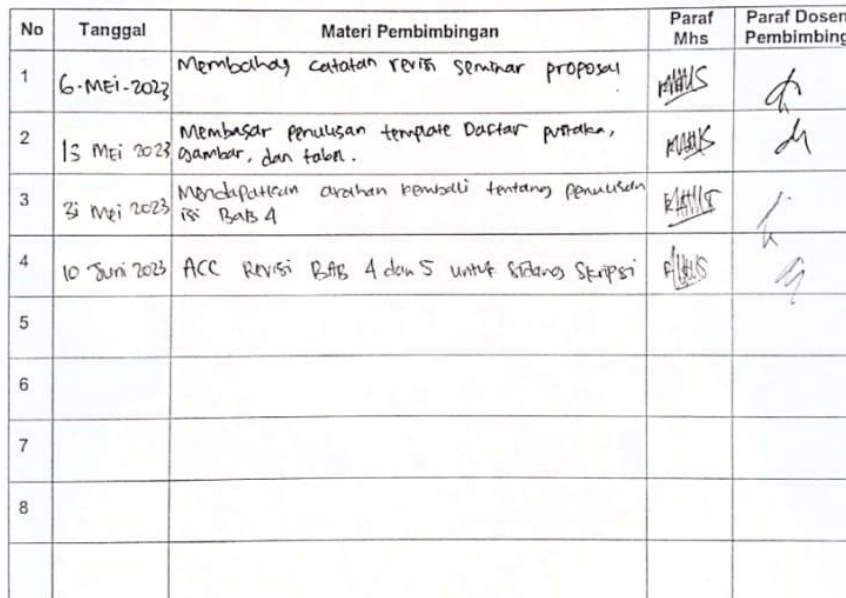 No Tanggal Materi Pembimbingan Paraf Mhs Paraf Dosen Pembimbing
1 6-MEi-2023 Membahas catatan revisi seminar proposal
2 13 MEi 2023 Membasar penulisan template Daftar pustaka,
gambar, dan tabel.
3 31 Mei 2023 Mendapatkan arahan kembali tentang penulisan
isi BaB 4
4 10 Juni 2023 ACC Revisi BAB 4 dan 5 untuk Sidang Skripsi
5
6
7
8